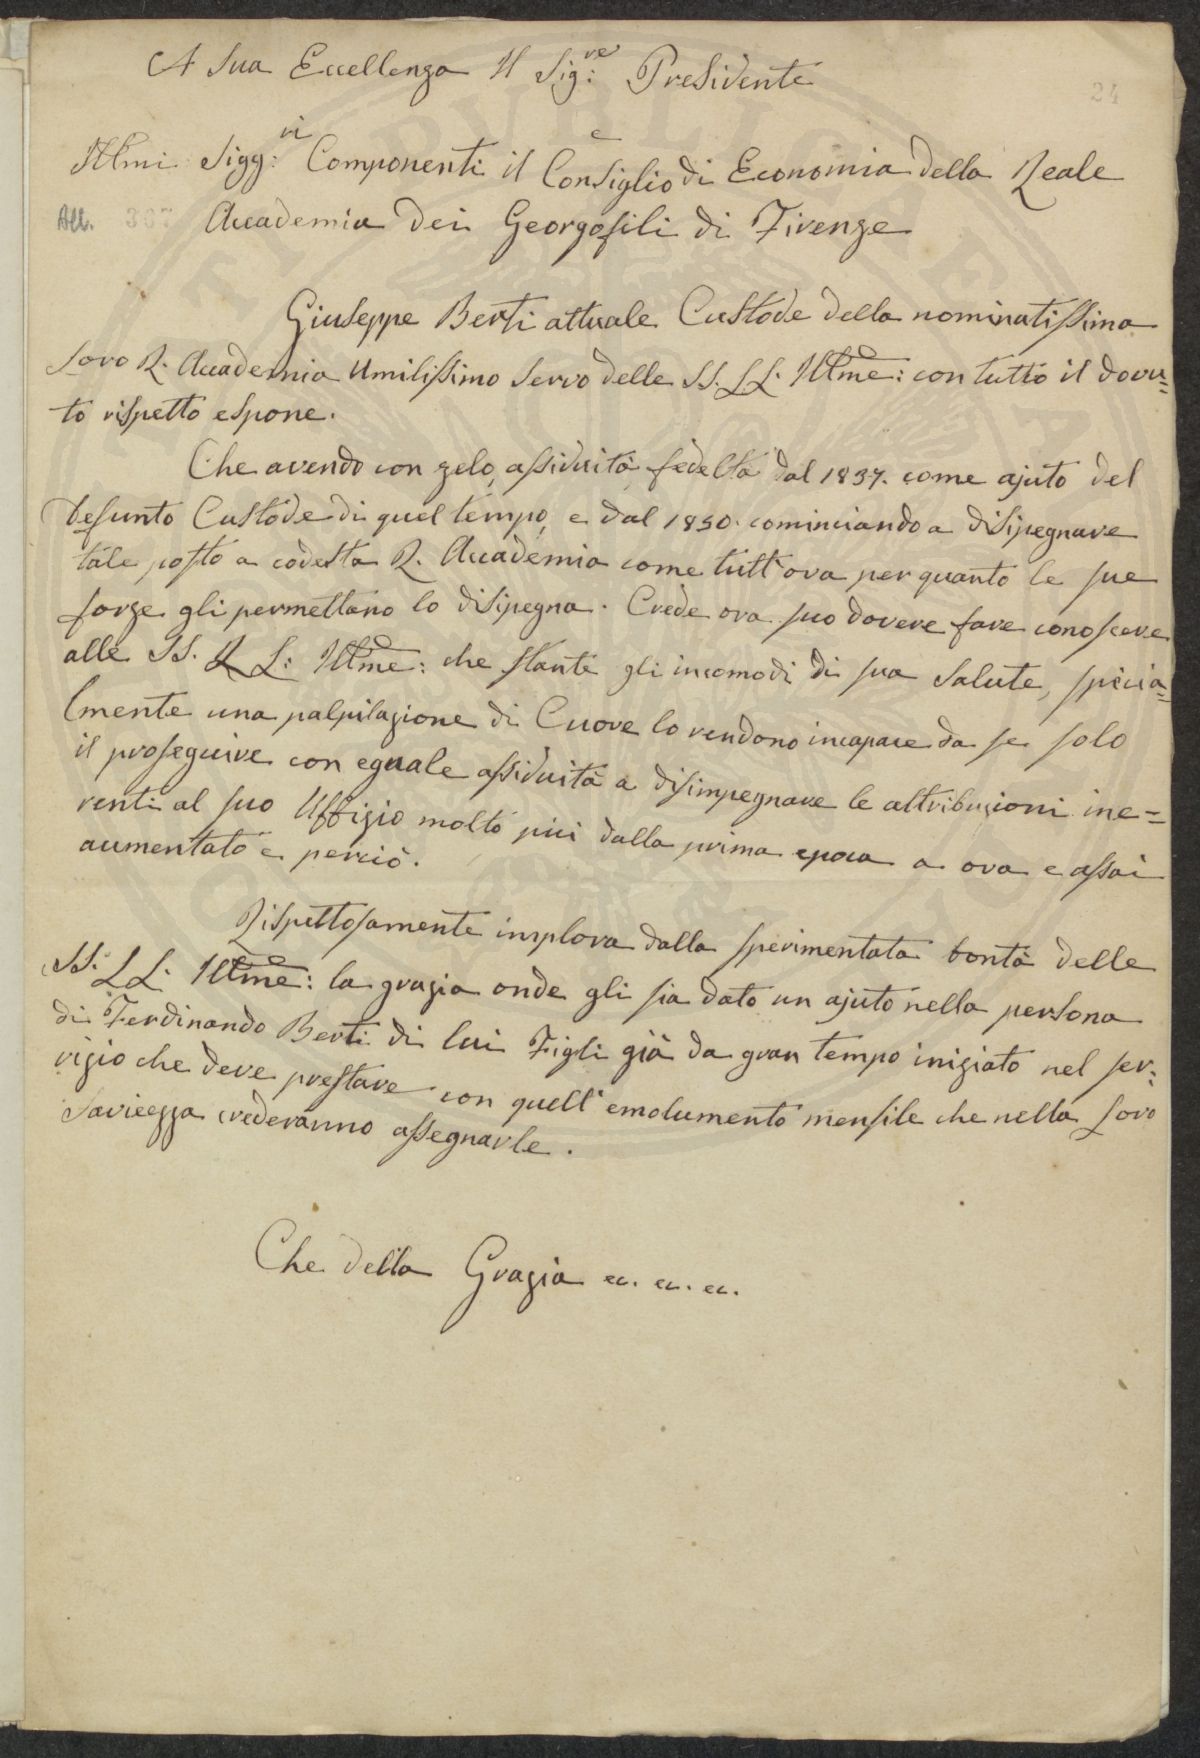 A Sua Eccellenza Il Sig:re Presidente
24
e
Illmi Sigg:ri Componenti il Consiglio di Economia della Reale
All. 367 Accademia dei Georgofili di Firenze
Giuseppe Berti attuale Custode della nominatissima
Loro R. Accademia Umilissimo Servo delle SS. LL. Illme: con tutto il dovu=
to rispetto espone.
Che avendo con zelo, assiduità, fedeltà dal 1837. come ajuto del
Defunto Custode di quel tempo, e dal 1850. cominciando a disipegnare
tale posto a codesta R. Accademia come tutt'ora per quanto le sue
forze gli permettano lo disipegna. Crede ora suo dovere fare conoscere
alle SS. LL: Illme: che stante gli incomodi di sua Salute, specia=
lmente una palpitazione di Cuore lo rendono incapace da se solo
il proseguire con eguale assiduità a disimpegnare le attribuzioni ine=
renti al suo Uffizio molto più dalla prima epoca a ora e assai
aumentato e perciò.
Rispettosamente implora dalla sperimentata bontà delle
SS. LL. Illme: la grazia onde gli sia dato un ajuto nella persona
di Ferdinando Berti di lui Figli già da gran tempo iniziato nel ser=
vizio che deve prestare con quell'emolumento mensile che nella Loro
Saviezza crederanno assegnarle.
Che della Grazia ec. ec. ec.